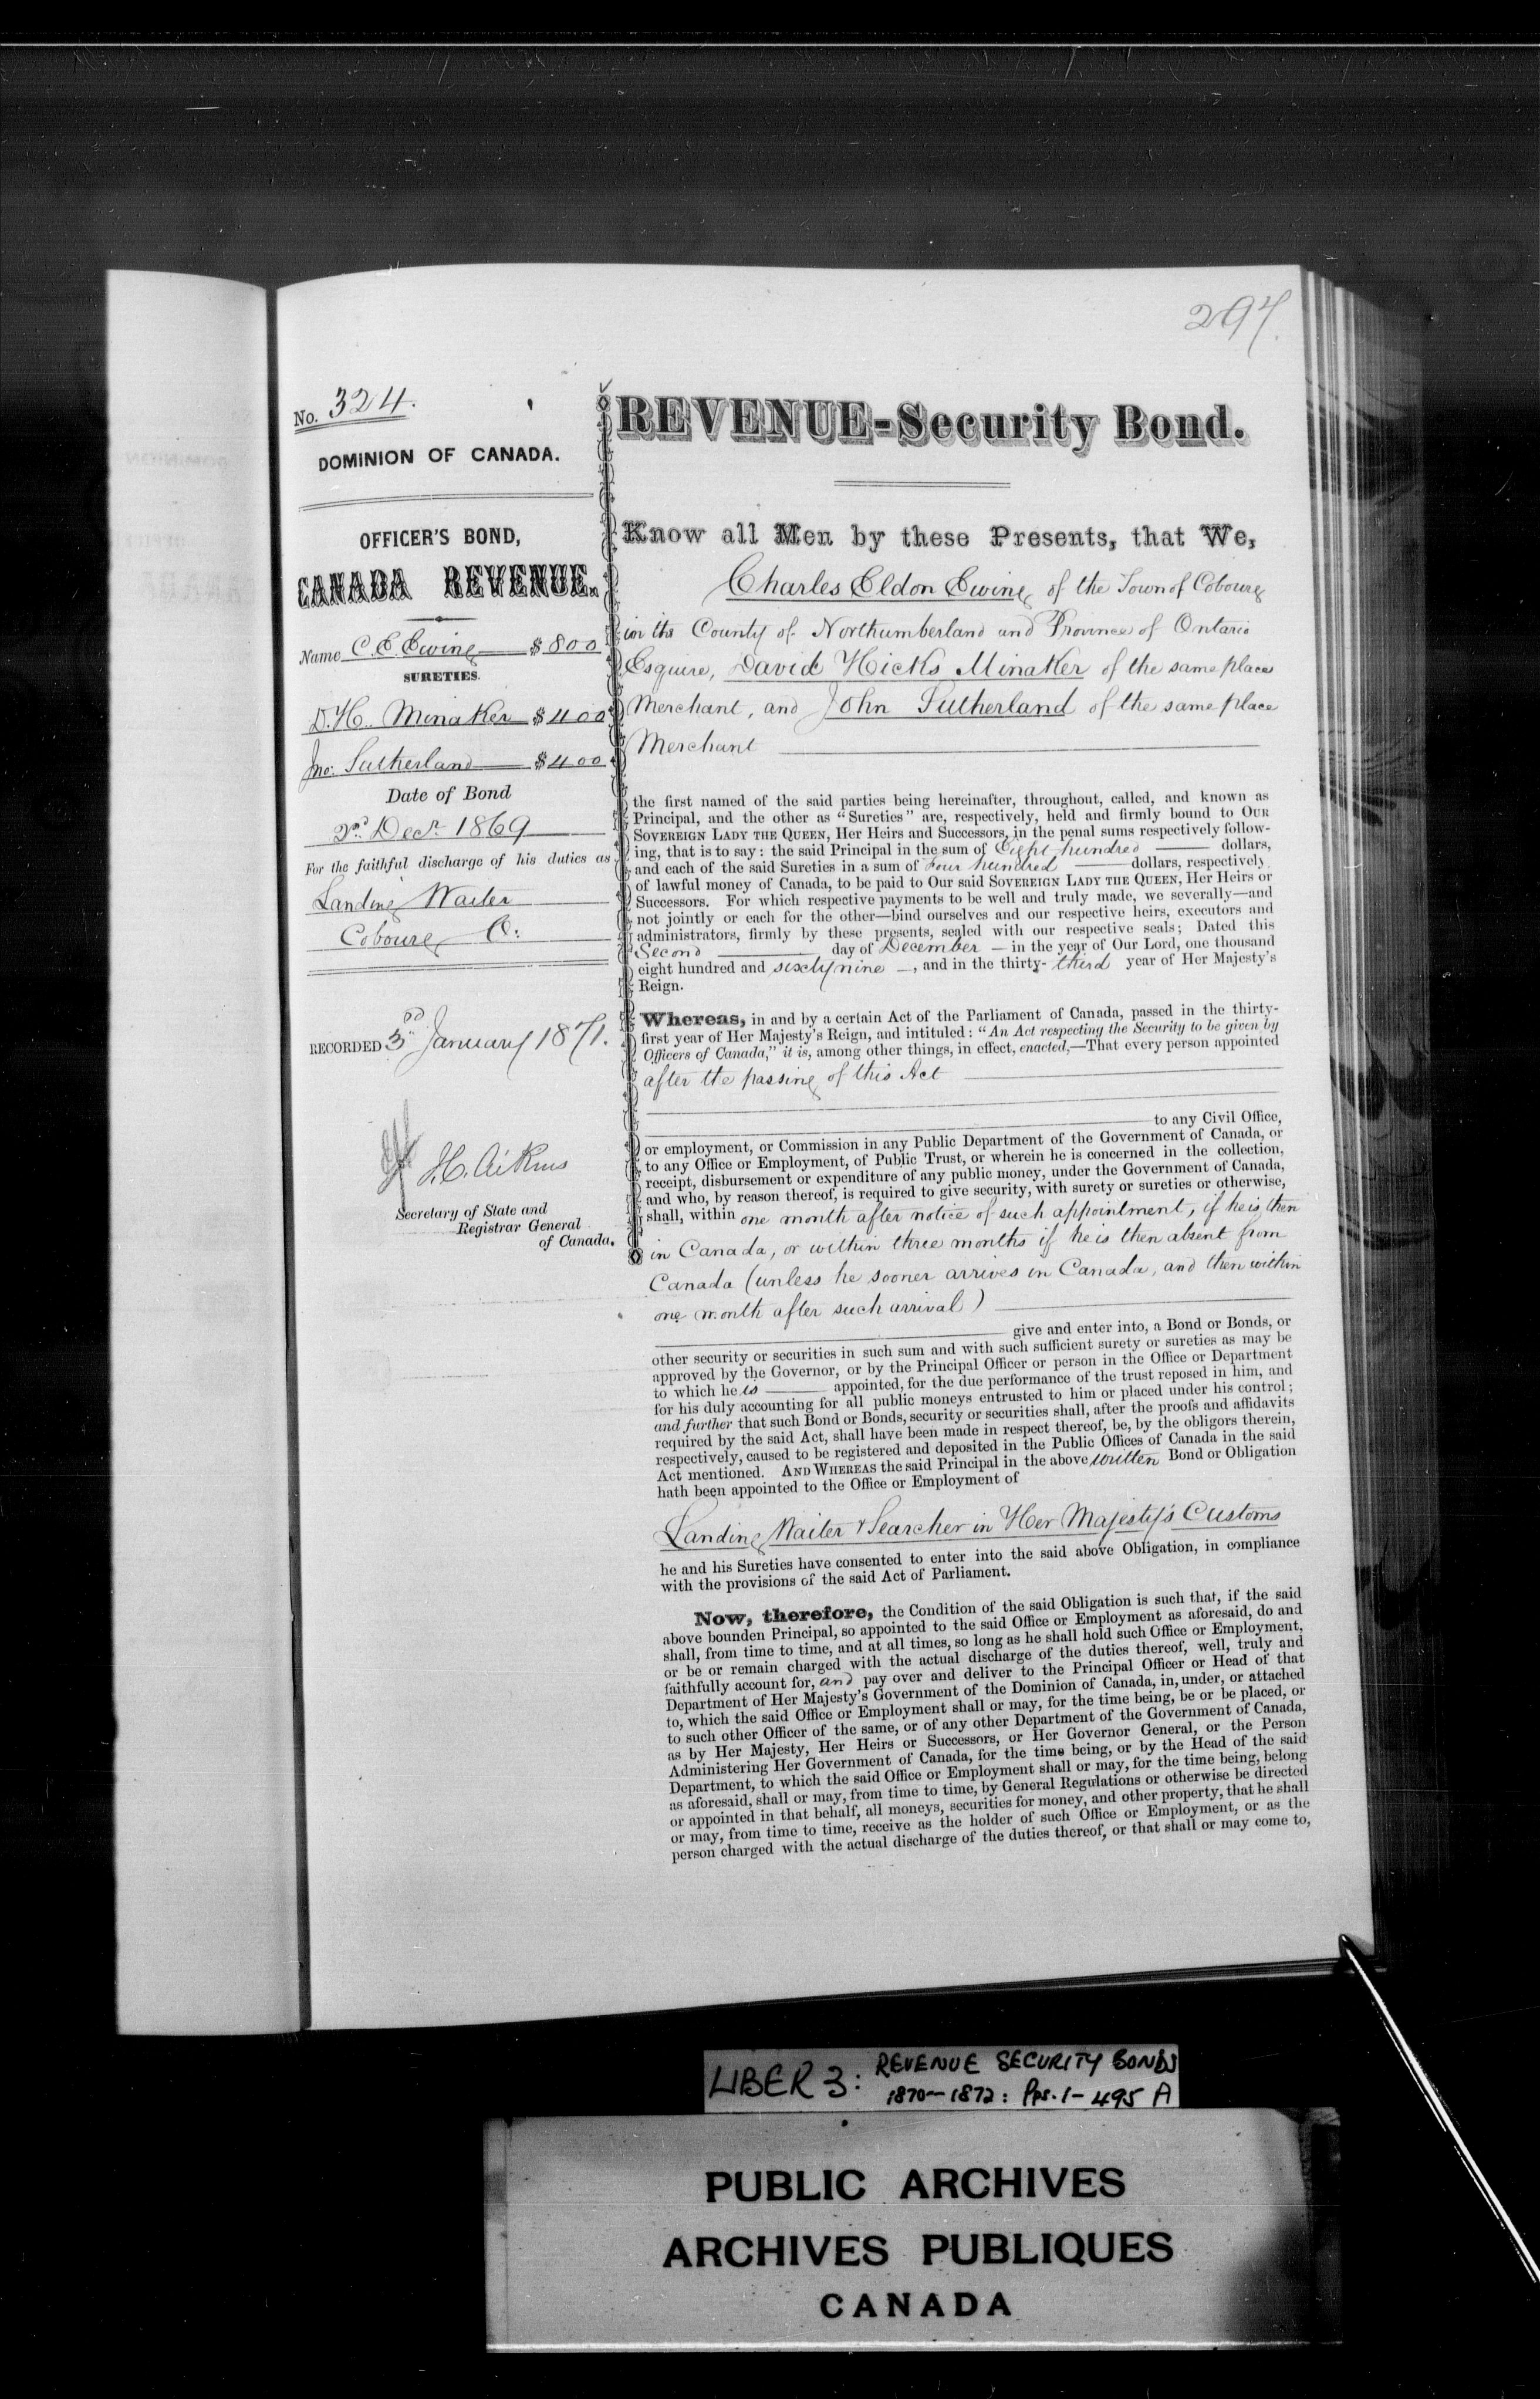 297.
No. 324.
DOMINION OF CANADA.
OFFICER'S BOND,
CANADA REVENUE.
Name C. E. Ewing $800
SURETIES.
D. H. Minaker $400
Jno: Sutherland $400
Date of Bond
2nd Decr. 1869
For the faithful discharge of his duties as
Landing Waiter
Cobourg O:
RECORDED 3rd January 1871.
J. C. Aikins
Secretary of State and
Registrar General
of Canada.
REVENUE-Security Bond.
Know all Men by these Presents, that We,
Charles Eldon Ewing of the Town of Cobourg
in the County of Northumberland and Province of Ontario
Esquire, David Hicks Minaker of the same place
Merchant, and John Sutherland of the same place
Merchant
the first named of the said parties being hereinafter, throughout, called, and known as
Principal, and the other as "Sureties" are, respectively, held and firmly bound to OUR
SOVEREIGN LADY THE QUEEN, Her Heirs and Successors, in the penal sums respectively follow-
ing, that is to say: the said Principal in the sum of Eight hundred dollars,
and each of the said Sureties in a sum of Four hundred dollars, respectively
of lawful money of Canada, to be paid to Our said SOVEREIGN LADY THE QUEEN, Her Heirs or
Successors. For which respective payments to be well and truly made, we severally—and
not jointly or each for the other—bind ourselves and our respective heirs, executors and
administrators, firmly by these presents, sealed with our respective seals; Dated this
Second day of December in the year of Our Lord, one thousand
eight hundred and sixty nine, and in the thirty-third year of Her Majesty's
Reign.
Whereas, in and by a certain Act of the Parliament of Canada, passed in the thirty-
first year of Her Majesty's Reign, and intituled: "An Act respecting the Security to be given by
Officers of Canada," it is, among other things, in effect, enacted,—That every person appointed
after the passing of this Act
to any Civil Office,
or employment, or Commission in any Public Department of the Government of Canada, or
to any Office or Employment, of Public Trust, or wherein he is concerned in the collection,
receipt, disbursement or expenditure of any public money, under the Government of Canada,
and who, by reason thereof, is required to give security, with surety or sureties or otherwise,
shall, within one month after notice of such appointment, if he is then
in Canada, or within three months if he is then absent from
Canada (unless he sooner arrives in Canada, and then within
one month after such arrival)
give and enter into, a Bond or Bonds, or
other security or securities in such sum and with such sufficient surety or sureties as may be
approved by the Governor, or by the Principal Officer or person in the Office or Department
to which he is appointed, for the due performance of the trust reposed in him, and
for his duly accounting for all public moneys entrusted to him or placed under his control;
and further that such Bond or Bonds, security or securities shall, after the proofs and affidavits
required by the said Act, shall have been made in respect thereof, be, by the obligors therein,
respectively, caused to be registered and deposited in the Public Offices of Canada in the said
Act mentioned. AND WHEREAS the said Principal in the above written Bond or Obligation
hath been appointed to the Office or Employment of
Landing Waiter & Searcher in Her Majesty's Customs
he and his Sureties have consented to enter into the said above Obligation, in compliance
with the provisions of the said Act of Parliament.
Now, therefore, the Condition of the said Obligation is such that, if the said
above bounden Principal, so appointed to the said Office or Employment as aforesaid, do and
shall, from time to time, and at all times, so long as he shall hold such Office or Employment,
or be or remain charged with the actual discharge of the duties thereof, well, truly and
faithfully account for, and pay over and deliver to the Principal Officer or Head of that
Department of Her Majesty's Government of the Dominion of Canada, in, under, or attached
to, which the said Office or Employment shall or may, for the time being, be or be placed, or
to such other Officer of the same, or of any other Department of the Government of Canada,
as by Her Majesty, Her Heirs or Successors, or Her Governor General, or the Person
Administering Her Government of Canada, for the time being, or by the Head of the said
Department, to which the said Office or Employment shall or may, for the time being, belong
as aforesaid, shall or may, from time to time, by General Regulations or otherwise be directed
or appointed in that behalf, all moneys, securities for money, and other property, that he shall
or may, from time to time, receive as the holder of such Office or Employment, or as the
person charged with the actual discharge of the duties thereof, or that shall or may come to,
LIBER 3: REVENUE SECURITY BONDS
1870-1872: Pps. 1-495 A
PUBLIC ARCHIVES
ARCHIVES PUBLIQUES
CANADA